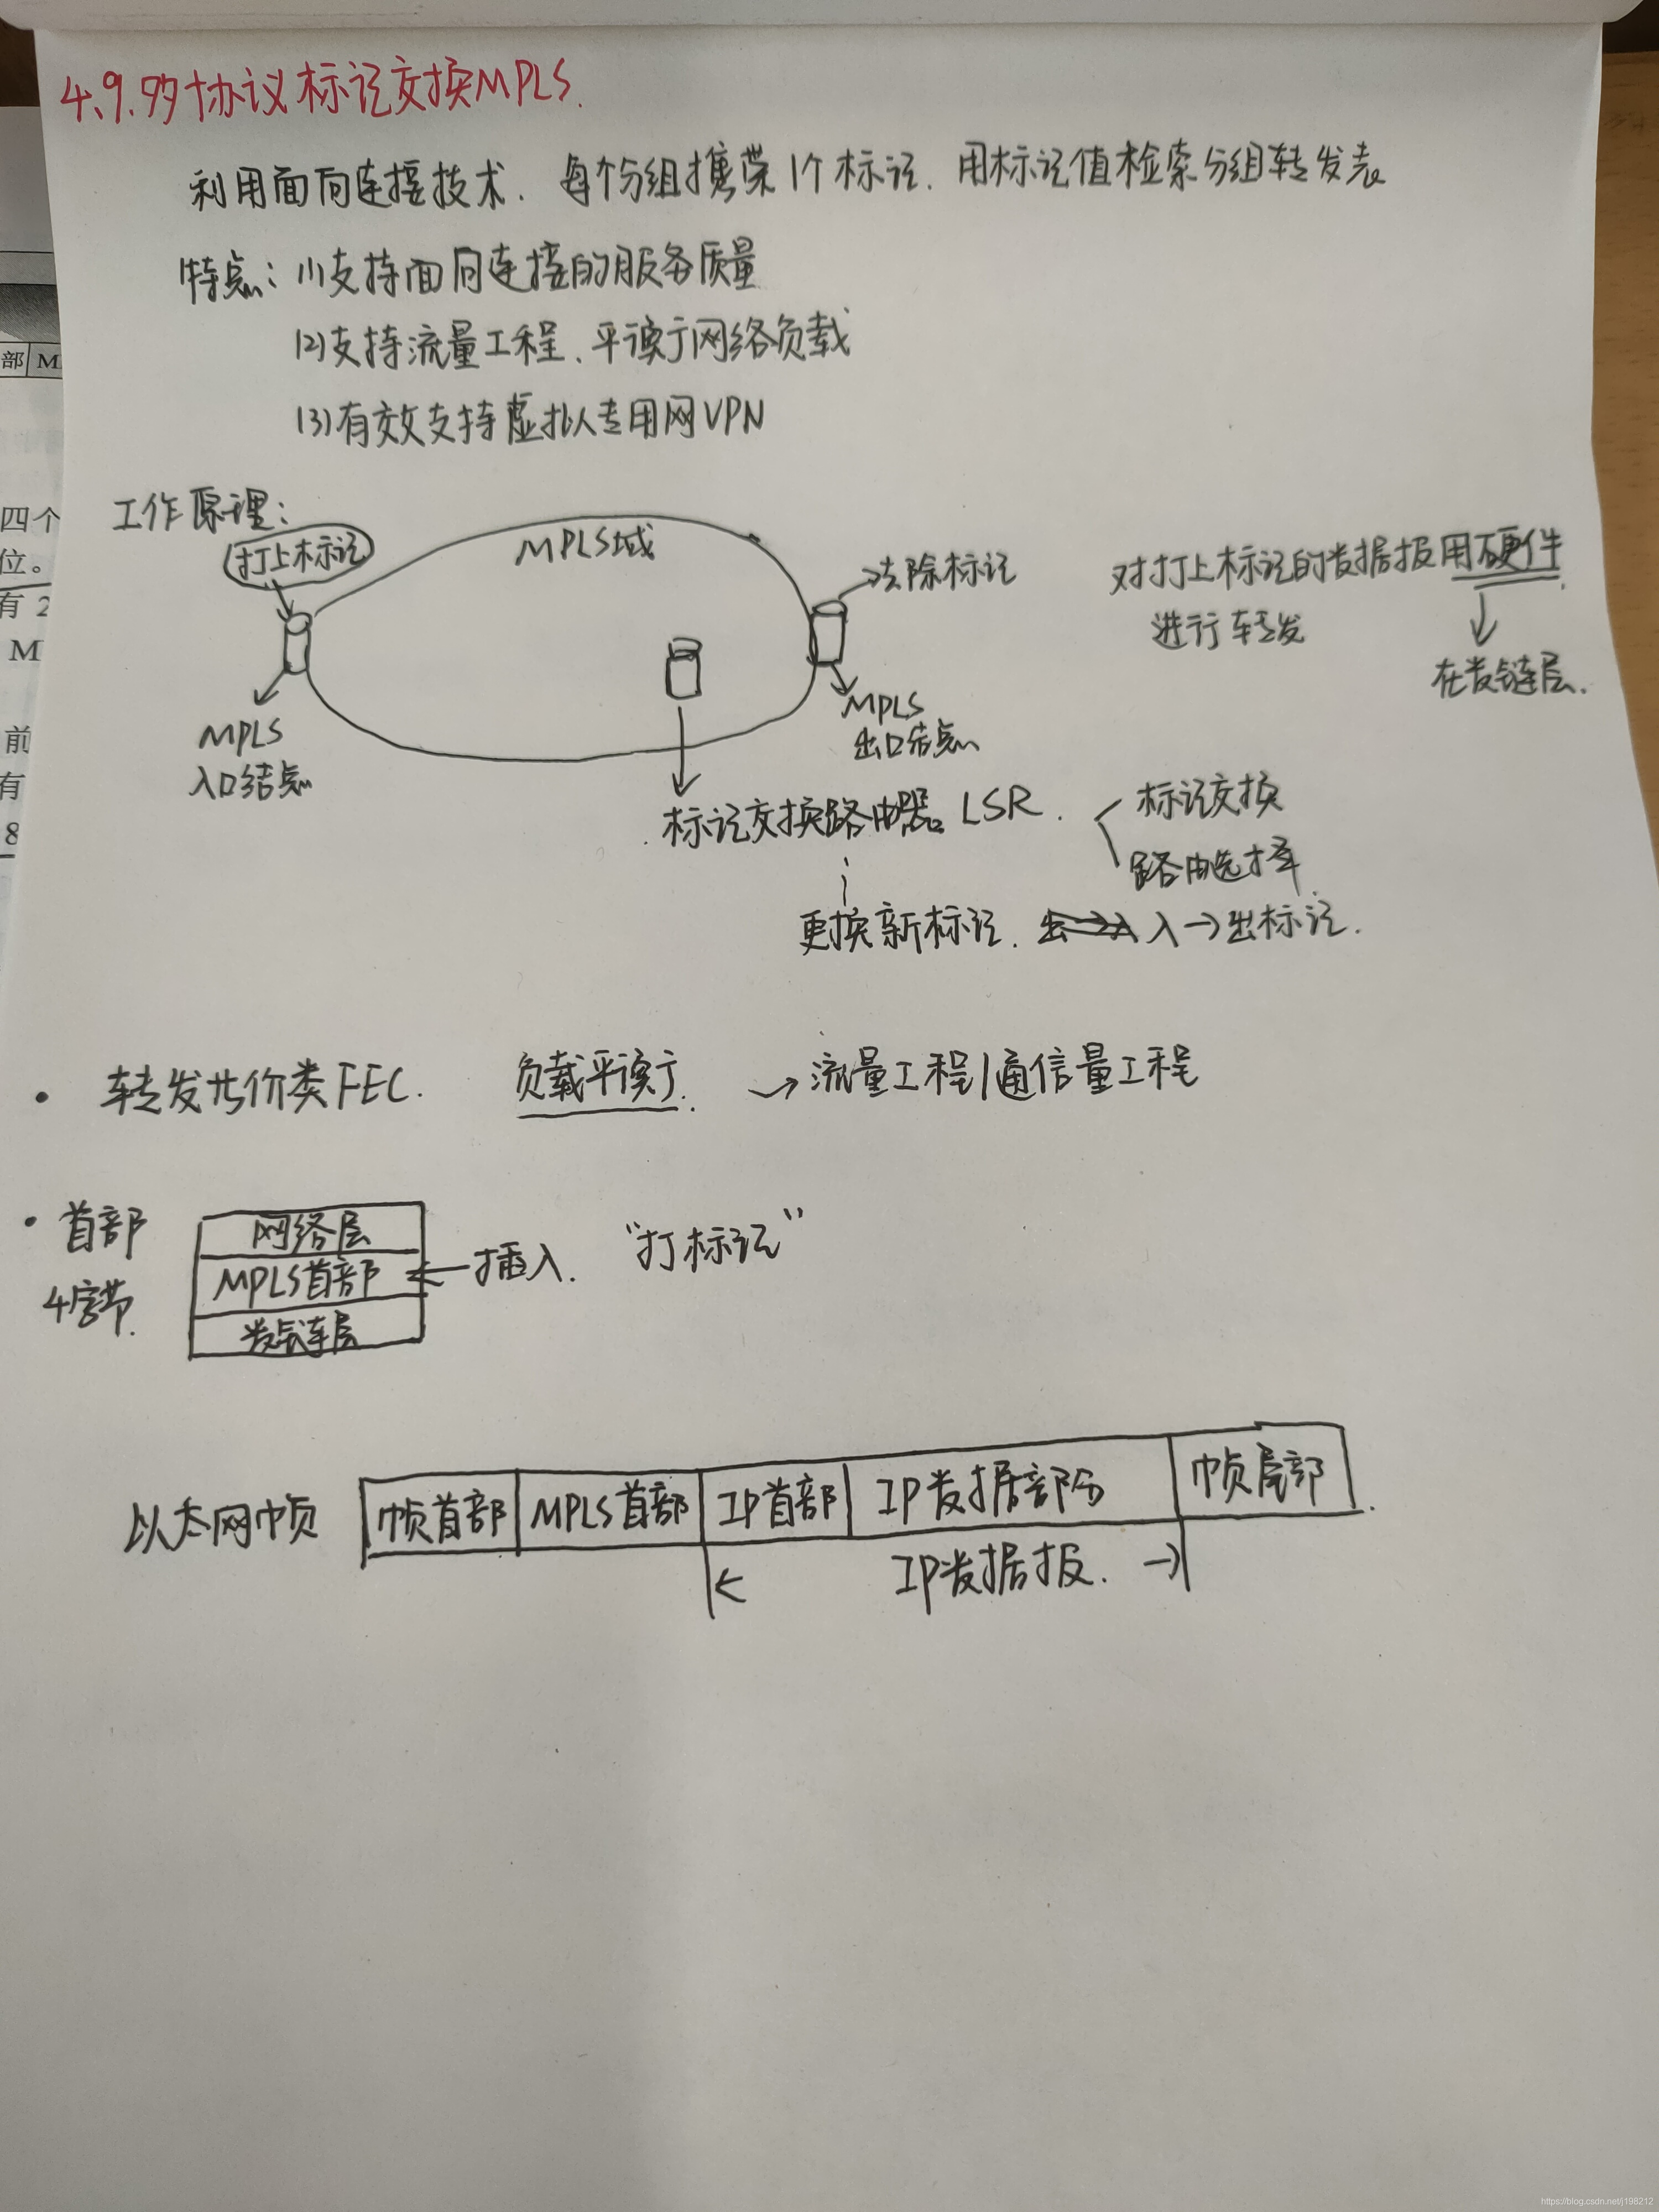 4.9.多协议标记交换MPLS.
利用面向连接技术. 每个分组携带1个标记. 用标记值检索分组转发表
特点: (1)支持面向连接的服务质量
(2)支持流量工程、平衡网络负载
(3)有效支持虚拟专用网VPN
工作原理:
打上标记
MPLS域
去除标记
对打上标记的数据报用硬件
进行转发
在数链层.
MPLS
入口结点
MPLS
出口结点
标记交换路由器 LSR.
标记交换
路由选择
更换新标记. 入→出标记.
• 转发等价类FEC. 负载平衡. → 流量工程/通信量工程
• 首部
4字节.
网络层
MPLS首部
数链层
← 插入. “打标记”
以太网帧
帧首部 MPLS首部 IP首部 IP数据部分 帧尾部
← IP数据报. →
部 M
四个
位。
有 2
M
前
有
8
https://blog.csdn.net/j198212